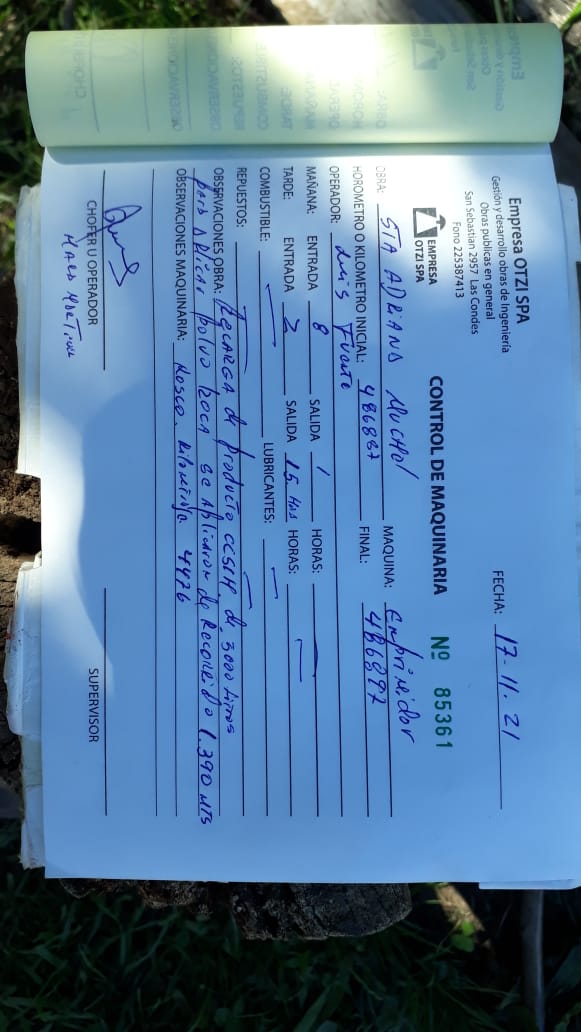 Empresa OTZI SPA
Gestión y desarrollo obras de Ingeniería
Obras publicas en general
San Sebastian 2957 Las Condes
Fono 225387413
EMPRESA
OTZI SPA
FECHA: 17-11.21
CONTROL DE MAQUINARIA Nº 85361
OBRA: STA ADRIANA MAQUINA: EMPrimidor
HOROMETRO O KILOMETRO INICIAL: 486887 FINAL: 486897
OPERADOR: Luis Fuente
MAÑANA: ENTRADA 8 SALIDA 1 HORAS: —
TARDE: ENTRADA 2 SALIDA 15 Has HORAS: —
COMBUSTIBLE: — LUBRICANTES: —
REPUESTOS: — —
OBSERVACIONES OBRA: RECARGA de Producto de 3000 Litros
para APlicar Polvo ROCA se APlicaron de RECORRIDO 1.390 MTS
OBSERVACIONES MAQUINARIA: Rosco. 4476
CHOFER U OPERADOR
SUPERVISOR